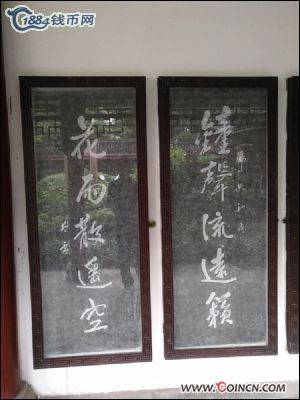 1884钱币网
鐘聲流遠籟
花雨散遥空
www.COINCN.com